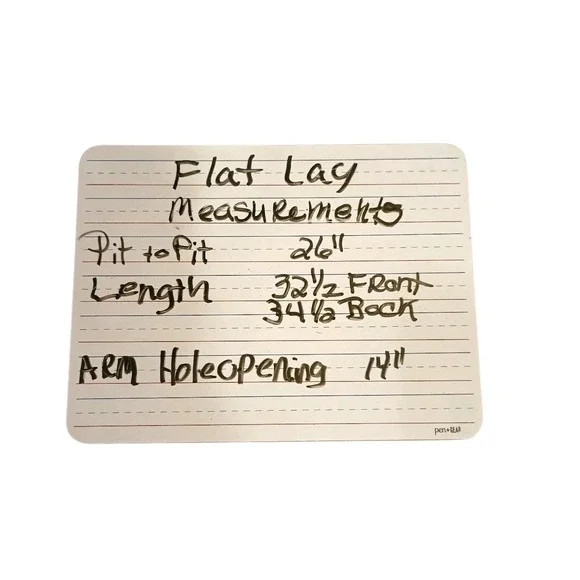 Flat Lay
Measurements
Pit to Pit 26"
Length 32 1/2 Front
34 1/2 Back
ARM Hole opening 14"
pen+GEAR